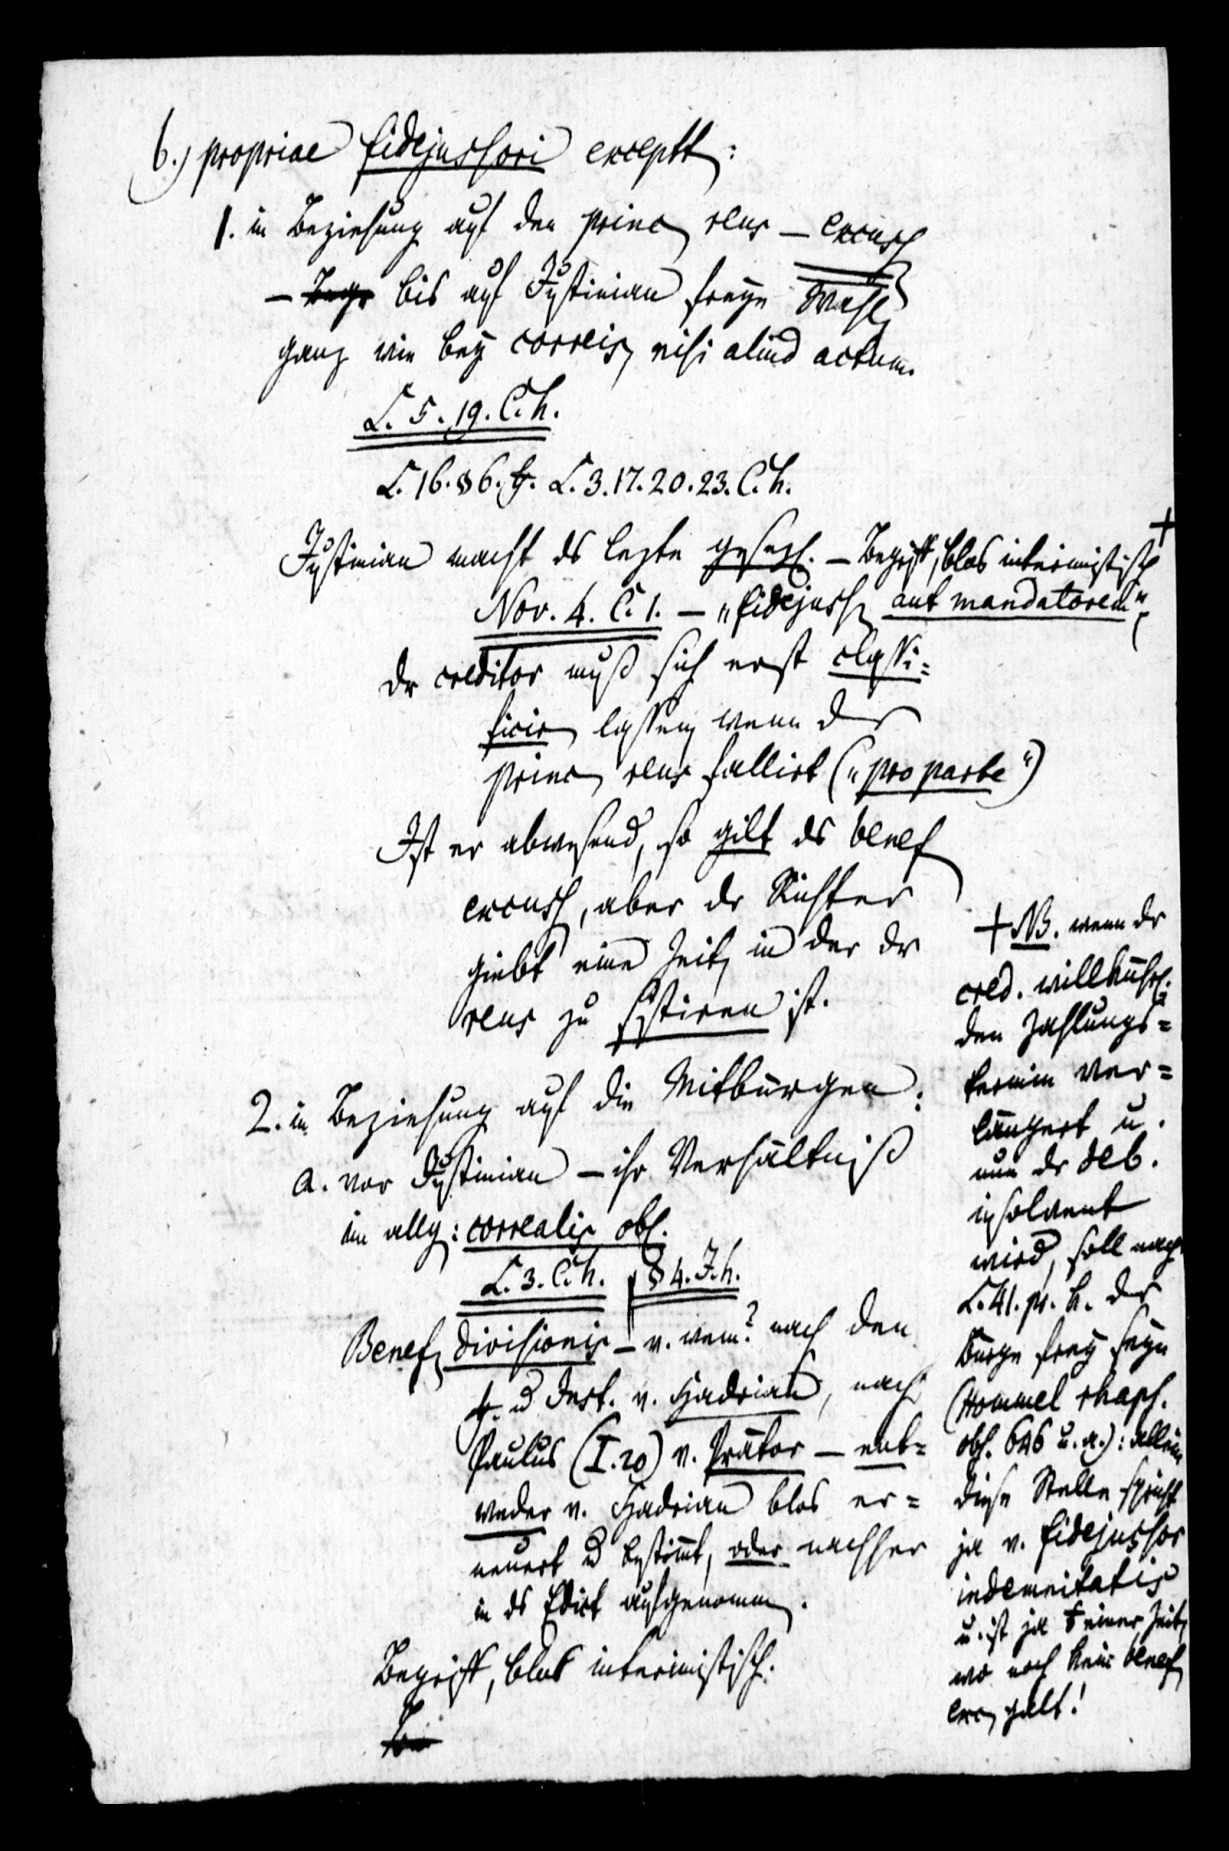 b.) propriae fidejussori exceptt:
1. in Beziehung auf den princ reus – excuss
– bis auf Justinian freye Wahl
ganz wie bey correis, nisi aliud actum.
L. 5. 19. C. h.
L. 16. § 6. h. L. 3. 17. 20. 23. C. h.
Justinian macht ds lezte gesezl. – Begriff, blos interimistisch +
Nov. 4. C. 1. – „fidejuss aut mandatorem“
dr creditor muß sich erst classi=
ficir lassen, wenn der
princ reus fallirt („pro parte“)
Ist er abwesend, so gilt ds benef
excuss, aber dr Richter
giebt eine Zeit, in der dr
reus zu sistiren ist.
2. in Beziehung auf die Mitbürgen:
a. vor Justinian – ihr Verhältniß
im allg: correalis obl.
L. 3. C. h. § 4. J. h.
Benef divisionis – v. wem? nach den
u Inst. v. Hadrian, nach
Paulus (I. 20) v. Prätor – ent=
weder v. Hadrian blos er=
neuert u bestimt, oder nachher
in ds Edict aufgenomm.
Begriff, blos interimistisch.
+ NB. wenn dr
cred. willkührl.
den Zahlungs=
termin ver=
längert u.
nun dr deb.
insolvent
wird, soll nach
L. 41. pr. h. der
Bürge frey seyn
(Hommel rhaps.
obs. 646 u. a.): allein
diese Stelle spricht
ja v. fidejussor
indemnitatis
u. ist ja einer Zeit,
wo noch kein benef
exc galt!